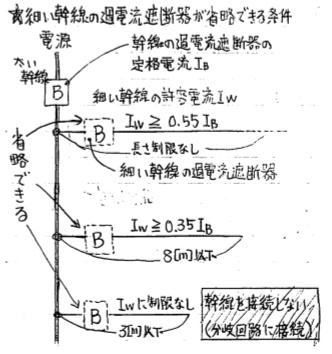 細い幹線の過電流遮断器が省略できる条件
電源
太い幹線
B
幹線の過電流遮断器の
定格電流 IB
細い幹線の許容電流 Iw
B
Iw ≧ 0.55 IB
長さ制限なし
細い幹線の過電流遮断器
省略できる
B
Iw ≧ 0.35 IB
8[m]以下
B
Iwに制限なし
3[m]以下
幹線を接続しない
(分岐回路に接続)